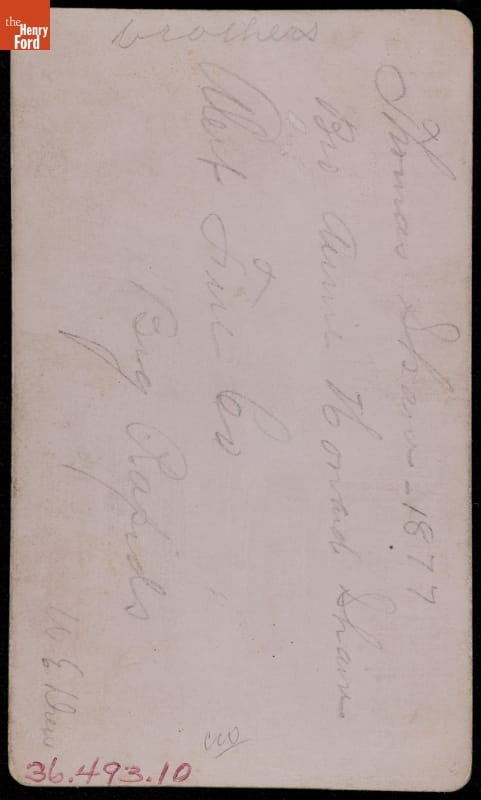 the
Henry
Ford
brothers
Thomas Shaw - 1877
Bro Annie Howard Shaw
Wert Fire Co
Big Rapids
W E Drew
36.493.10